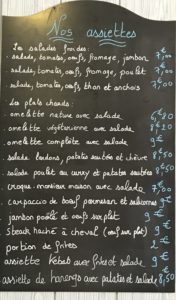 Nos assiettes
Les salades froides:
. salade, tomates, œufs, fromage, jambon 7€,00
. salade, tomates, œufs, fromage, poulet 7€,00
. salade, tomates, œufs, thon et anchois 7€,00
Les plats chauds:
. omelette nature avec salade 6€,80
. omelette végétarienne avec salade 8€,20
. omelette complète avec salade 9€
. salade lardons, patates sautées et chèvre 8€,50
. salade poulet au curry et patates sautées 8€,50
. croque-monsieur maison avec salade 7€,00
. carpaccio de bœuf parmesan et 9€
jambon poêlé et œufs sur plat 9€
Steack haché à cheval (œuf sur plat) 9€
portion de frites 2€
assiette Kebab avec frites et salade 9€
assiette de harengs avec patates et salade 8€,50